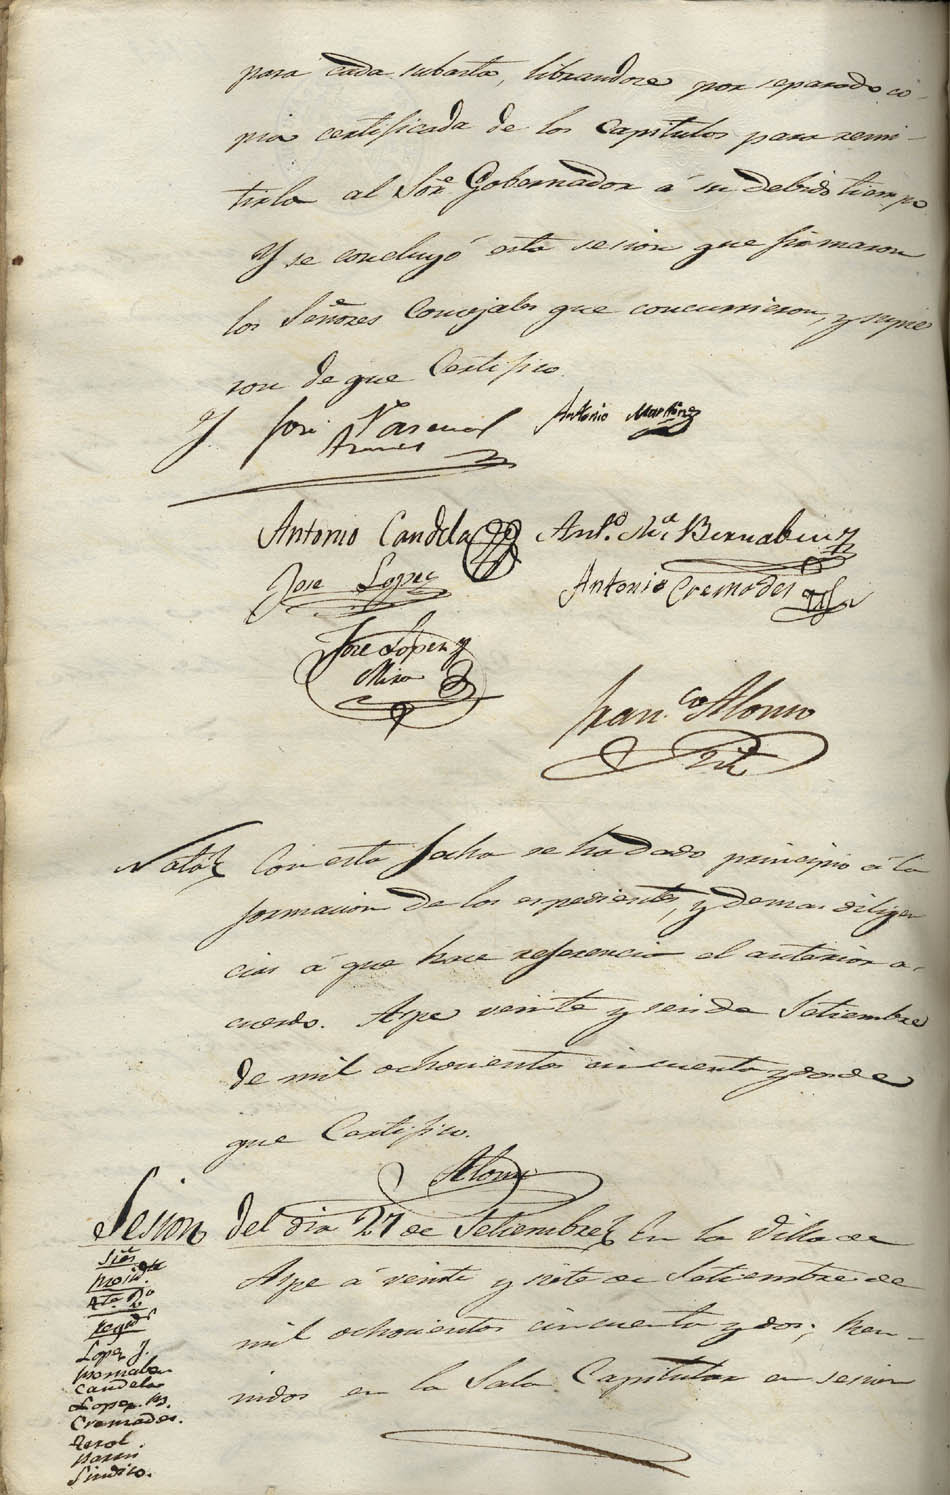 para cada subasta, librandose por separado co-
pia certificada de los Capitulos para remi-
tirla al Sõr. Gobernador á su debido tiempo
Y se concluyó esta sesion que firmaron
los Señores Concejales que concurrieron, y supie
ron de que Certifico.
José Pascual Antonio Martinez
Antonio Candela Ant.º M.ª Bernabeu
Jose Lopez Antonio Cremades
Jose Lopez y
Mira
Fran.co Alonso
Nota Con esta fecha se ha dado principio á la
formacion de los espedientes, y demas diligen
cias á que hace referencia el anterior a-
cuerdo. Aspe veinte y seis de Setiembre
de mil ochocientos cincuenta y dos de
que Certifico.
Alonso
Sesion del dia 27 de Setiembre En la Villa de
Señs
Presid.te
Regid.s
Lopez J.
Bernabeu
Candela
Lopez M.
Cremades.
Sindico.
Aspe á veinte y siete de Setiembre de
mil ochocientos cincuenta y dos; Reu-
nidos en la Sala Capitular en sesion